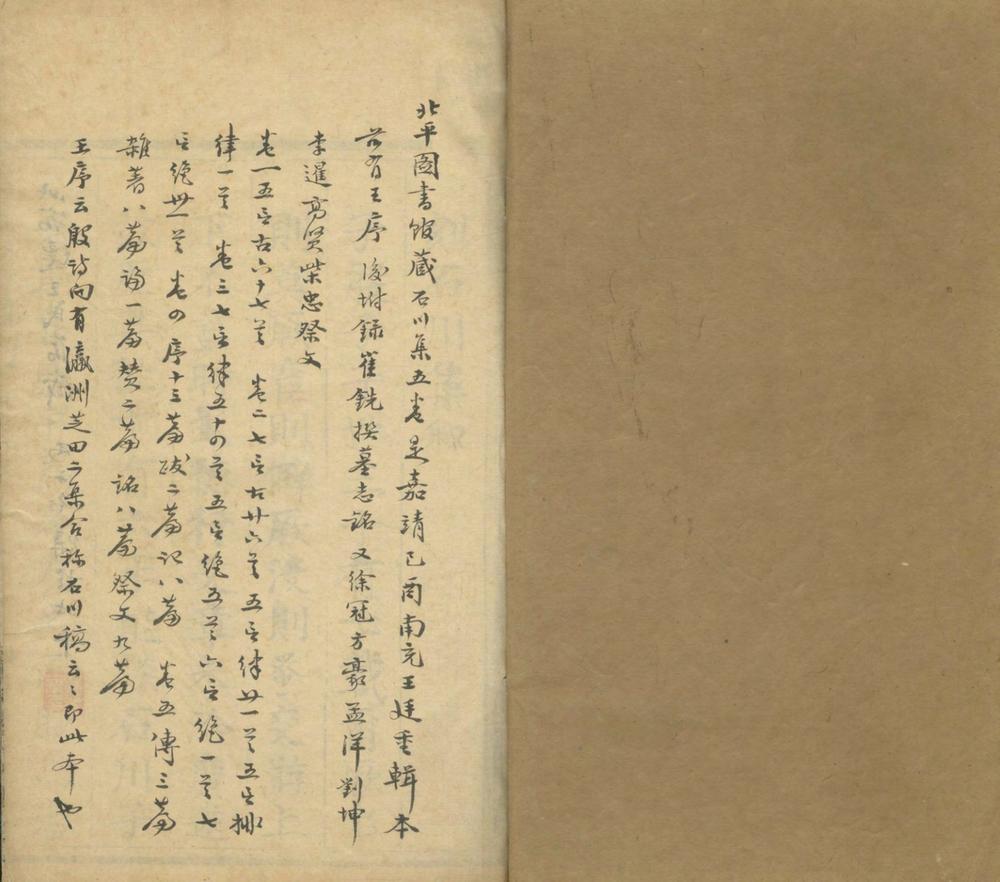 北平圖書館藏石川集五卷是嘉靖己酉南充王廷重輯本
前有王序後坿錄崔銑撰墓志銘又徐冠方豪孟洋劉坤
李暹高賢柴忠祭文
卷一五言古六十七首 卷二七言古廿六首五言律廿一首五言排
律一首 卷三七言律五十四首五言絕五首六言絕一首七
言絕卅一首 卷四序十三篇跋二篇記八篇 卷五傳三篇
雜著八篇誨一篇贊二篇銘八篇祭文九篇
王序云殷詩向有瀛洲芝田二集合称石川稿云云即此本也